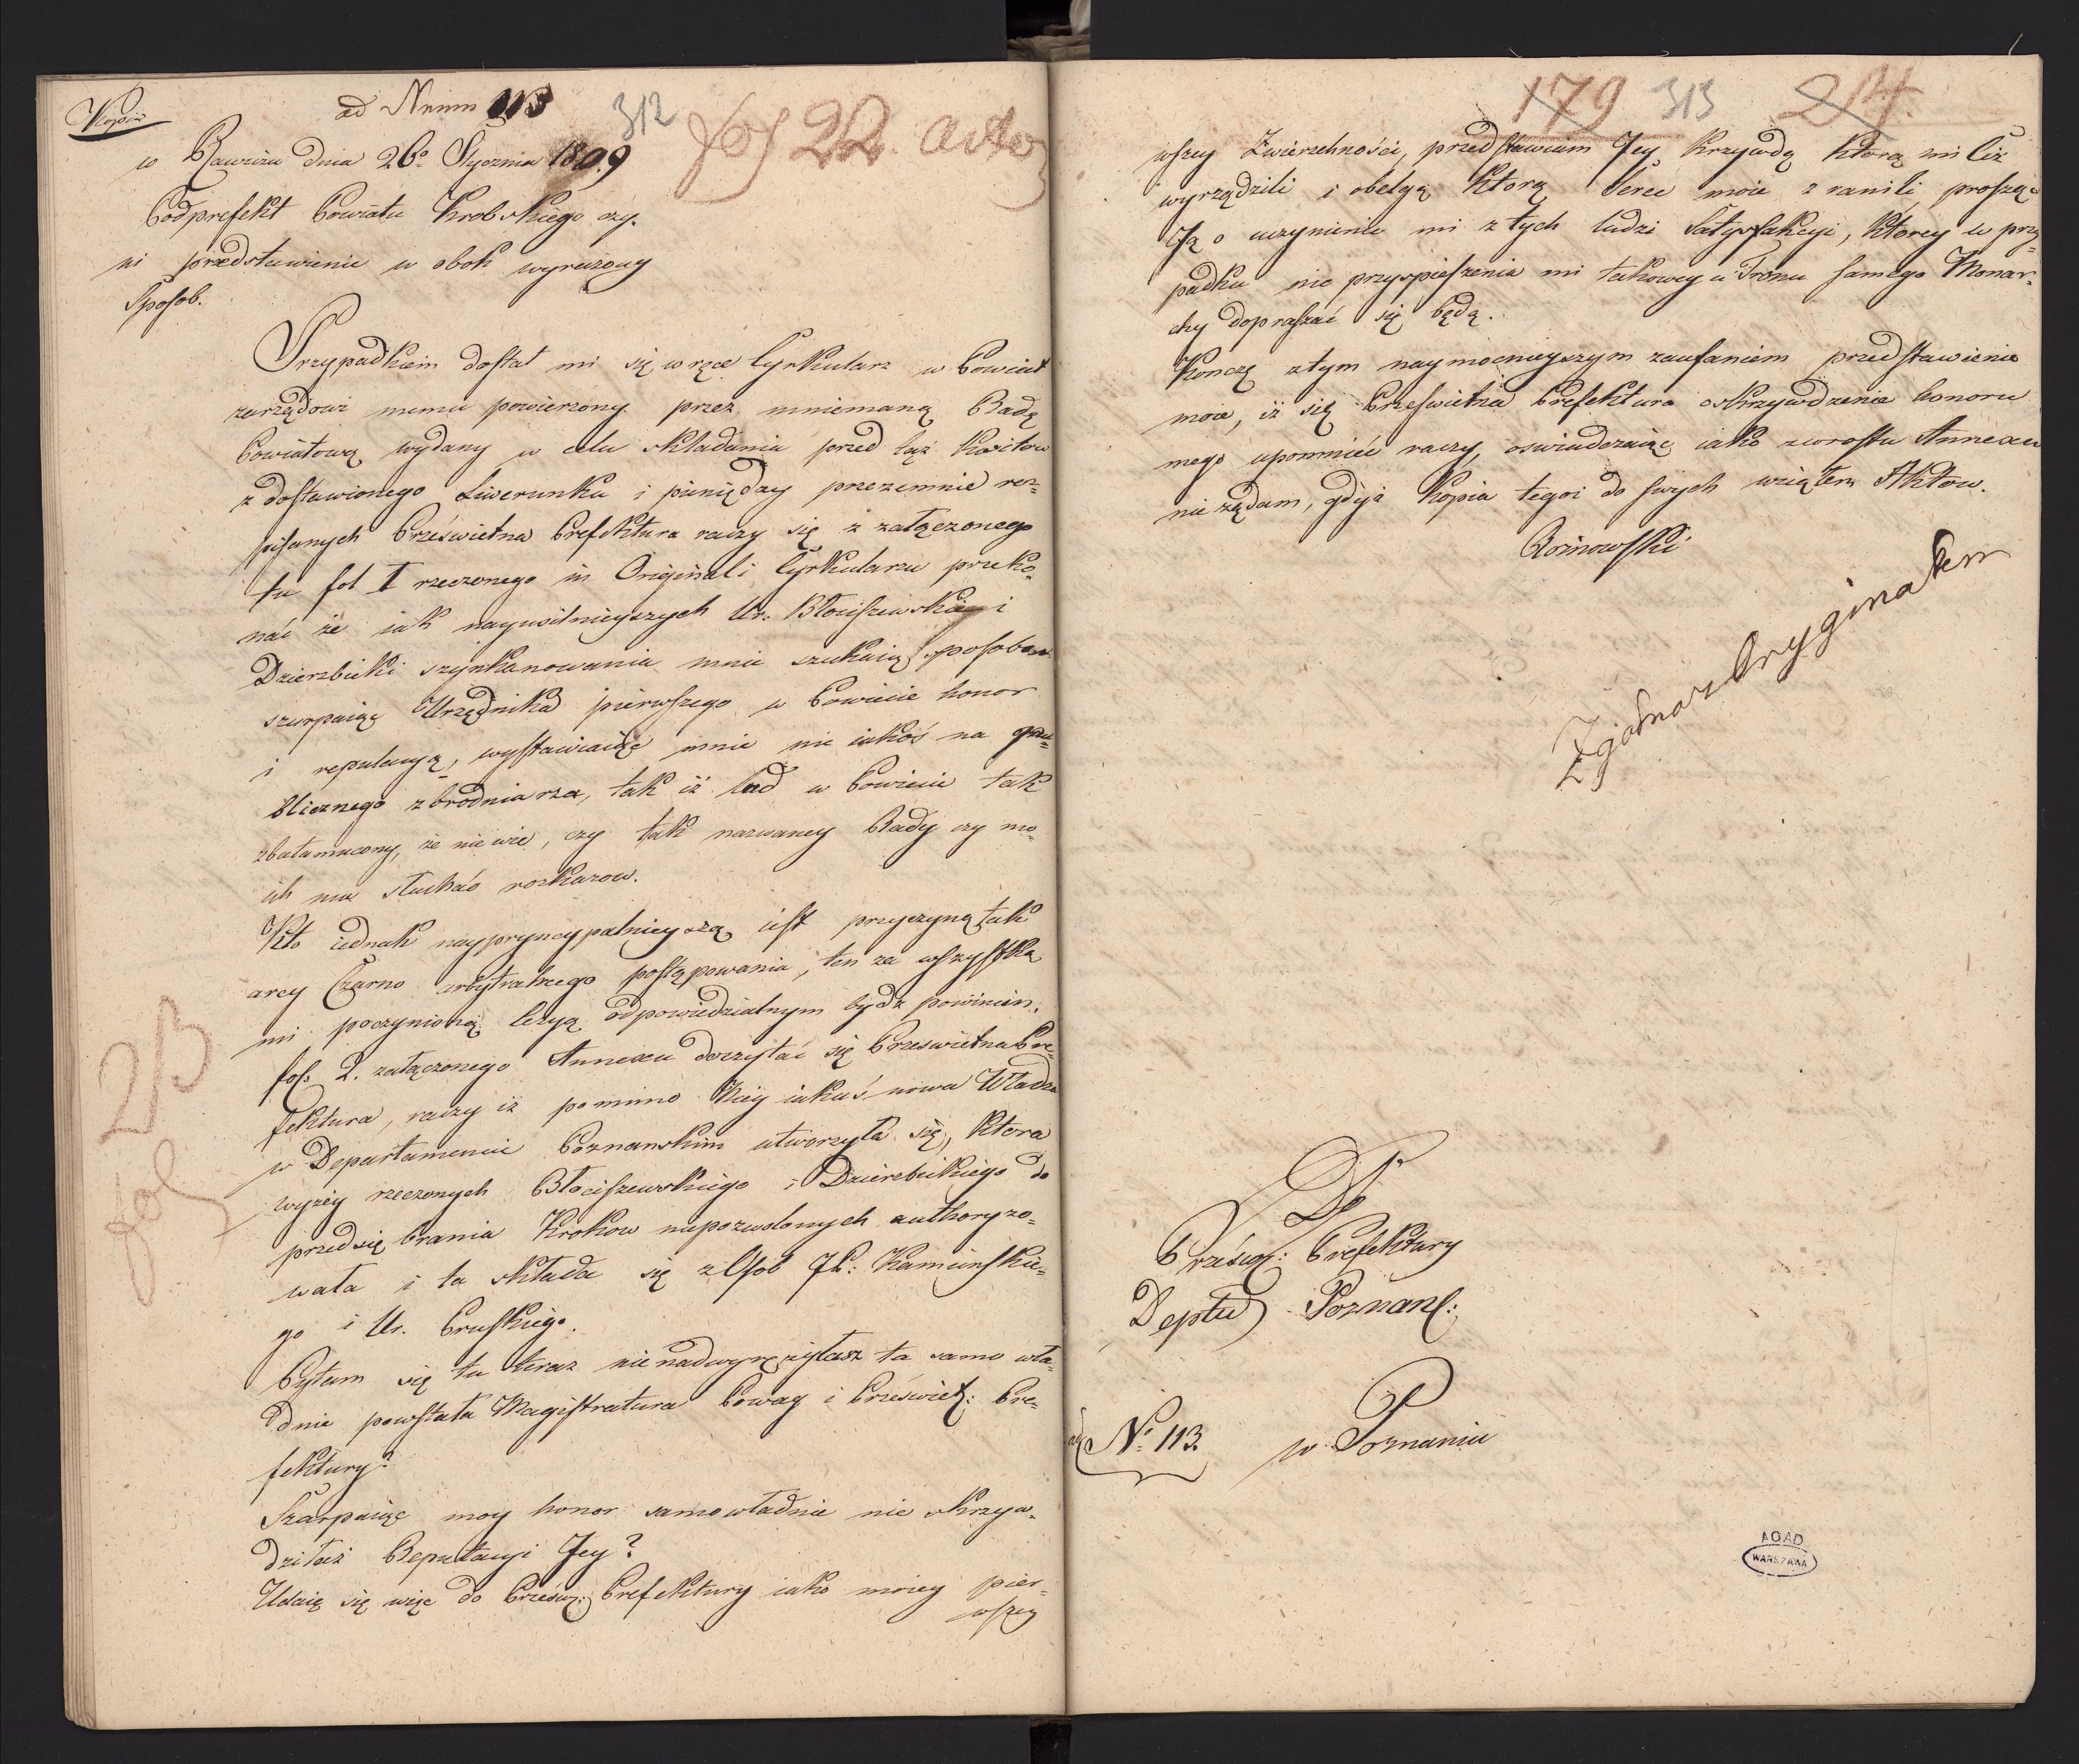 Kopia
ad Nrum 113
312
fol 22. actor
w Rawiczu dnia 26º Stycznia 1809
Podprefekt Powiatu Krobskiego czy-
ni przedstawienie w obok wyrażony
Sposob.
Przypadkiem dostał mi się w ręce Cyrkularz w Powiat
zarządowi memu powierzony przez mniemaną Radę
Powiatową wydany w celu składania przed tąż kwitow
z dostawionego Liwerunku i pieniędzy przezemnie roz-
pisanych Prześwietna Prefektura raczy się z załączonego
tu fol I rzeczonego in Originali Cyrkularzu przeko-
nać że iak nayusilnieyszych Ur. Błociszewski i
Dzierzbicki szynkanowania mnie szukaią sposobow
szarpaiąc Urzędnika pierwszego w Powiecie honor
i reputacyą, wystawiaiąc mnie nie iakoś na pu-
blicznego zbrodniarza, tak iż lud w Powiecie tak
zbałamucony, że nie wie, czy tak nazwaney Rady czy mo-
ich ma słuchać rozkazow.
Kto iednak naypryncypalnieyszą iest przyczyną tak
arcy Czarno arbytralnego postępowania, ten za wszystką
mi poczynioną lezyą odpowiedzialnym bydz powinien.
fol: 2. załączonego Annexu doczytać się Prześwietna Pre-
fektura, raczy iż pomimo Niey iakaś nowa Władza
w Departamencie Poznanskim utworzyła się, ktora
wyżey rzeczonych Błociszewskiego i Dzierzbickiego do
przedsię brania Krokow niepozwolonych authoryzo-
wała i ta składa się z Osob JP: Kamieńskie-
go i Ur. Pruskiego.
Pytam się tu teraz nie nadwyrężyłasz ta samo wła-
dnie powstała Magistratura Powag i Przeświet: Pre-
fektury?
Szarpaiąc moy honor samowładnie nie skrzyw-
dziłaż Reputacyi Jey?
Udaię się więc do Prześw: Prefektury iako moiey pier-
wszey
213
fol
179 313 214.
wszey Zwierzchności, przedstawiam Jey Krzywdę ktorą mi Ciż
wyrządzili i obelgą ktorą Serce moie zranili, prosząc
Ją o uczynienie mi z tych ludzi Satysfakcyi, ktorey w przy-
padku nie przyspieszenia mi takowey u Tronu samego Monar-
chy dopraszać się będę.
Konczę z tym naymocnieyszym zaufaniem przedstawienie
moie, iż się Prześwietna Prefektura o skrzywdzenie honoru
mego upomnieć raczy, oswiadczaiąc iako zwrostu Annexu
nie żądam, gdyż Kopia tegoż do swych wziąłem Aktow.
Rożnowski
Zgodno z Oryginałem
Do
Prześw: Prefektury
Deptu Poznans:
ad Nº 113. w Poznaniu
AGAD
WARSZAWA